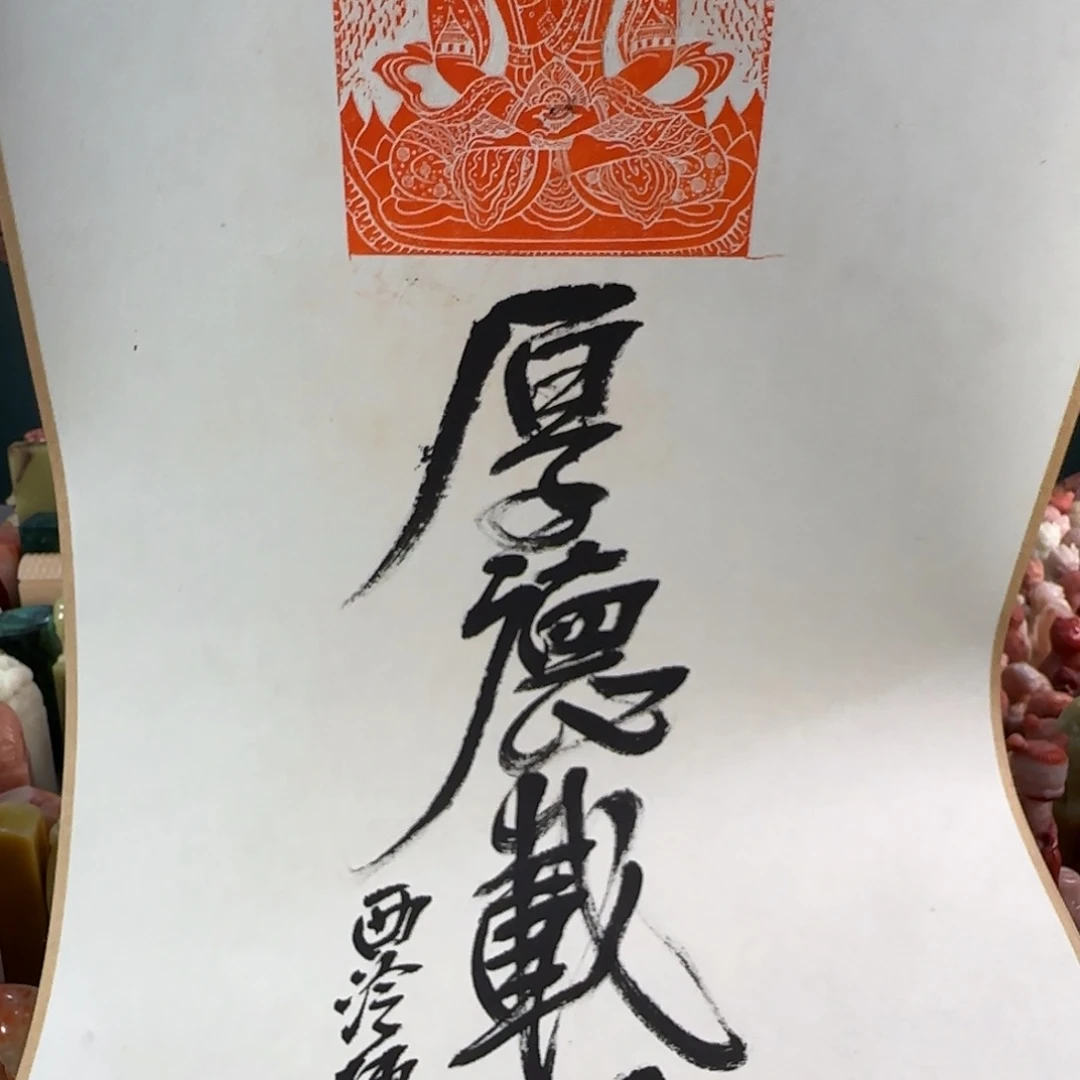 厚德載
西泠